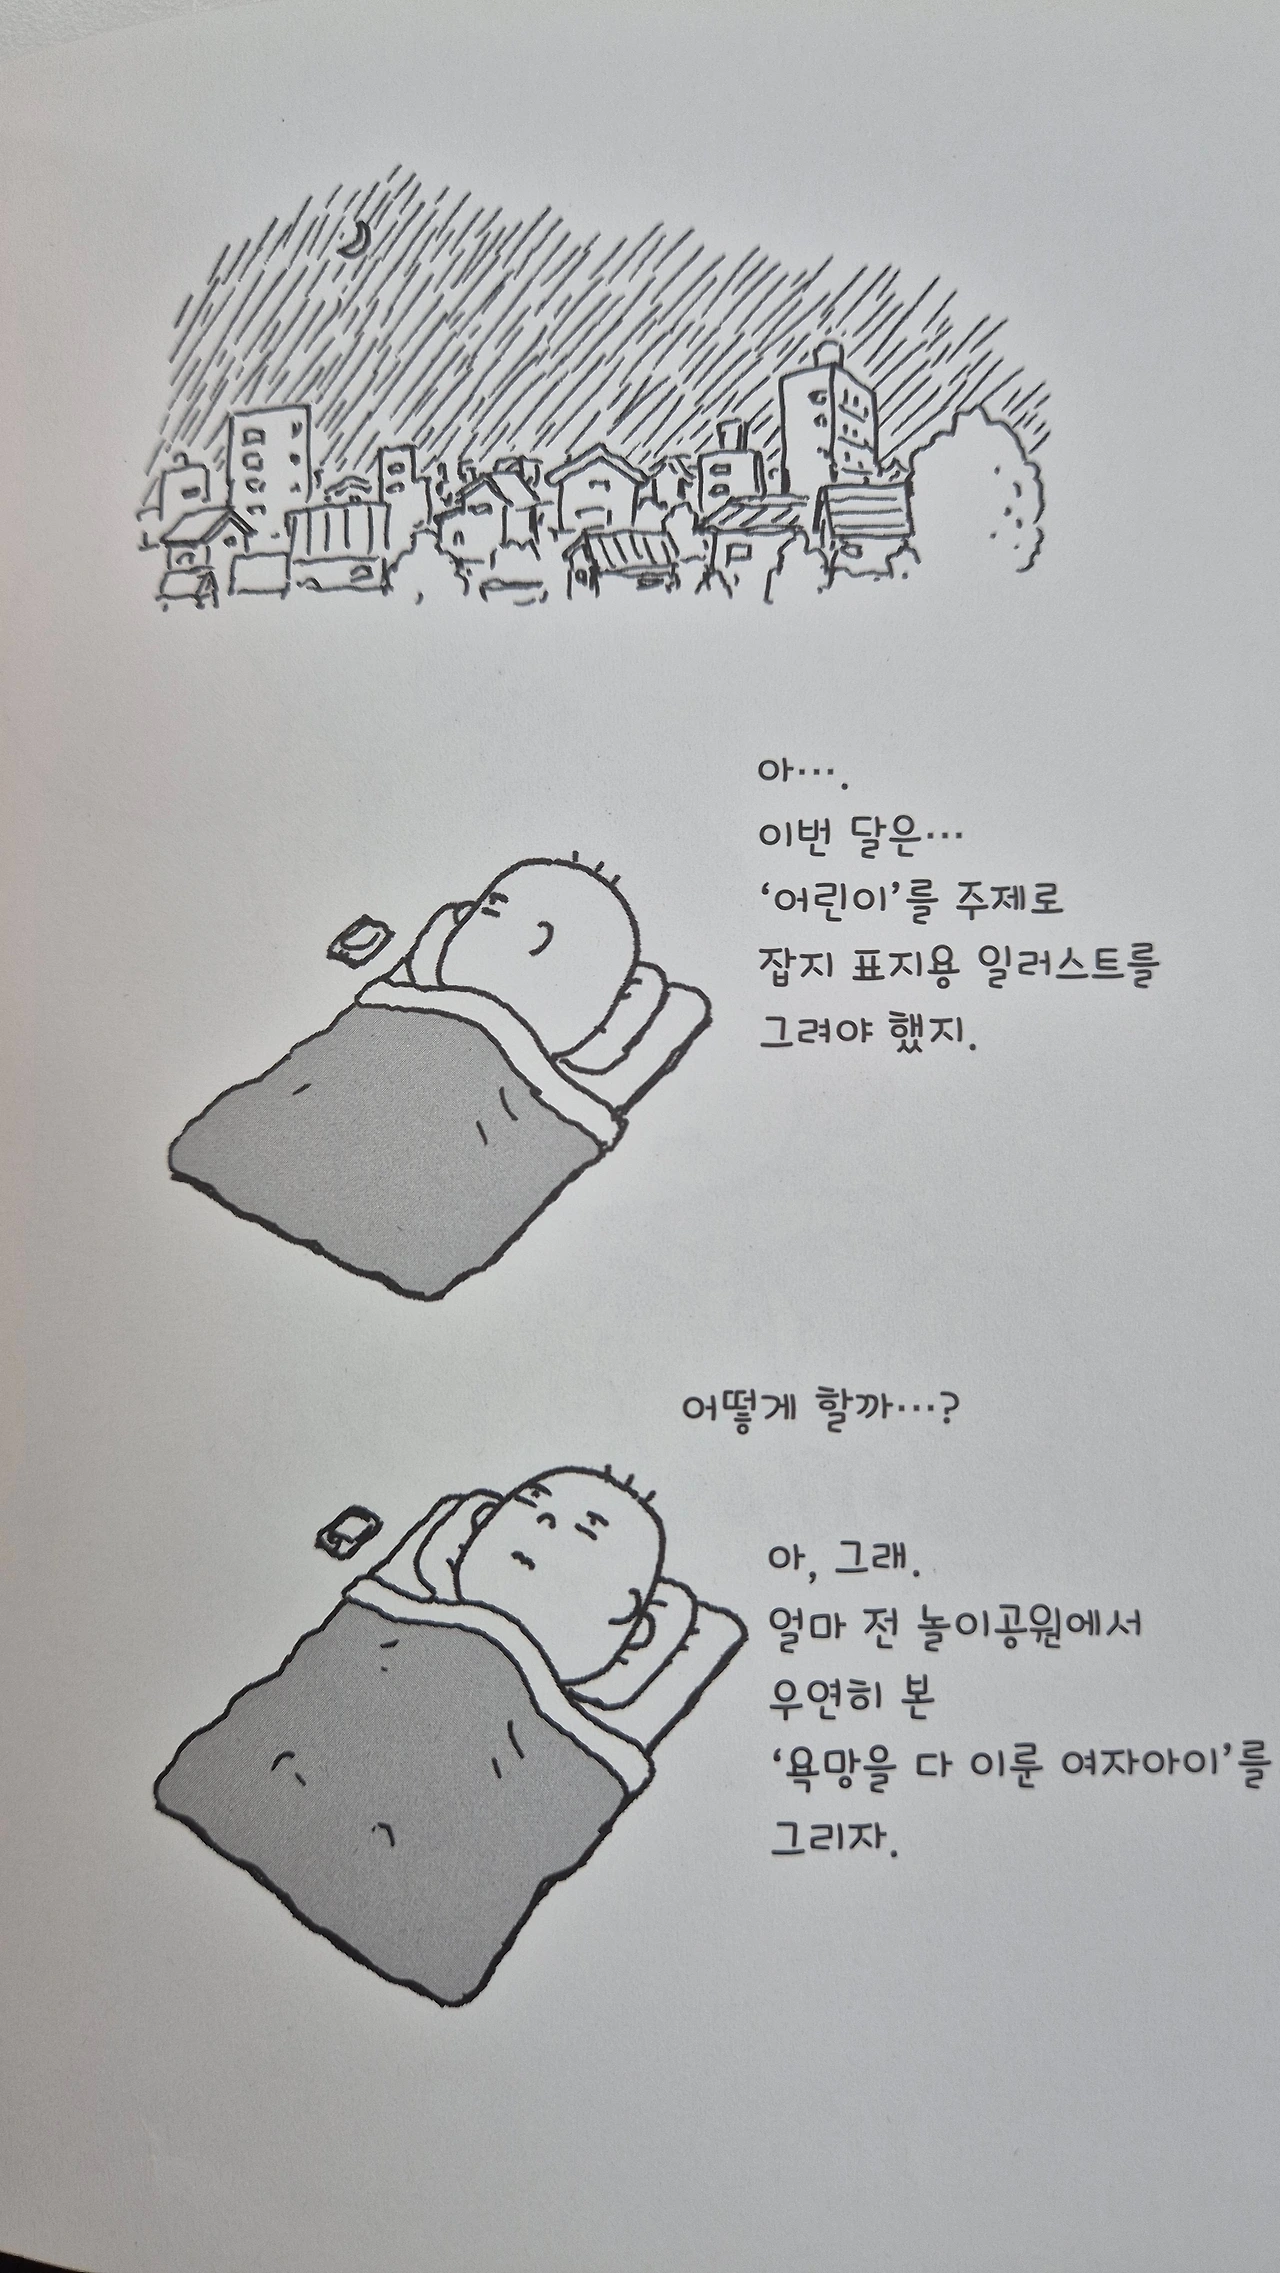 아….
이번 달은…
‘어린이’를 주제로
잡지 표지용 일러스트를
그려야 했지.
어떻게 할까…?
아, 그래.
얼마 전 놀이공원에서
우연히 본
‘욕망을 다 이룬 여자아이’를
그리자.